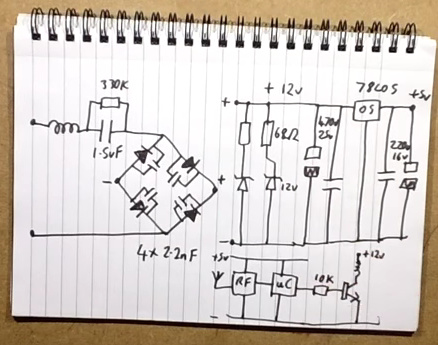 330K
1.5uF
-
+
4x 2.2nF
+ +12v 78L05 +5v
68Ω
470u
25v
05
220u
16v
12v
-
+5v
+12v
RF
uC
10K
-